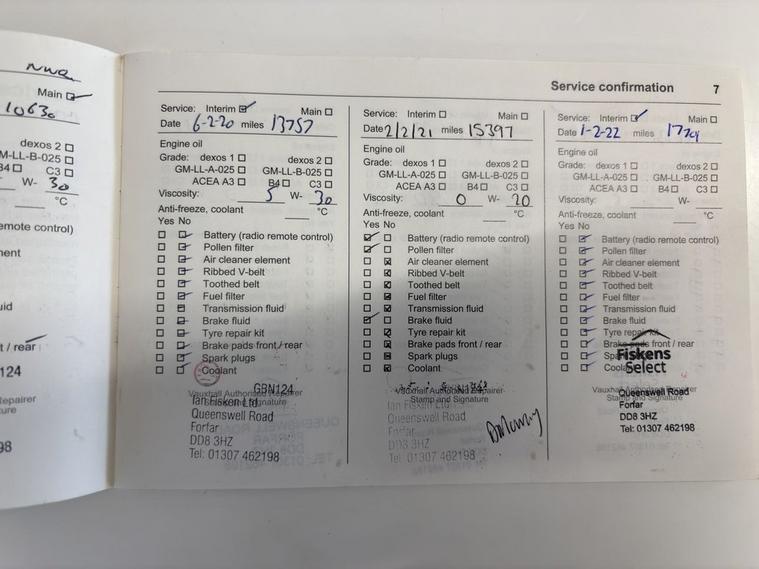 Main
10630
dexos 2
M-LL-B-025
B4 C3
W- 30
°C
emote control)
ment
uid
t / rear
124
Repairer
ture
98
Service confirmation 7
Service: Interim Main
Date 6-2-20 miles 13757
Engine oil
Grade: dexos 1 dexos 2
GM-LL-A-025 GM-LL-B-025
ACEA A3 B4 C3
Viscosity: 5 W- 30
Anti-freeze, coolant °C
Yes No
Battery (radio remote control)
Pollen filter
Air cleaner element
Ribbed V-belt
Toothed belt
Fuel filter
Transmission fluid
Brake fluid
Tyre repair kit
Brake pads front / rear
Spark plugs
Coolant
GBN124
Vauxhall Authorised Repairer
Stamp and Signature
Ian Fisken Ltd.
Queenswell Road
Forfar
DD8 3HZ
Tel: 01307 462198
Service: Interim Main
Date 2/2/21 miles 15397
Engine oil
Grade: dexos 1 dexos 2
GM-LL-A-025 GM-LL-B-025
ACEA A3 B4 C3
Viscosity: 0 W- 20
Anti-freeze, coolant °C
Yes No
Battery (radio remote control)
Pollen filter
Air cleaner element
Ribbed V-belt
Toothed belt
Fuel filter
Transmission fluid
Brake fluid
Tyre repair kit
Brake pads front / rear
Spark plugs
Coolant
Vauxhall Authorised Repairer
Stamp and Signature
Ian Fisken Ltd.
Queenswell Road
Forfar
DD8 3HZ
Tel: 01307 462198
Service: Interim Main
Date 1-2-22 miles
Engine oil
Grade: dexos 1 dexos 2
GM-LL-A-025 GM-LL-B-025
ACEA A3 B4 C3
Viscosity: W-
Anti-freeze, coolant °C
Yes No
Battery (radio remote control)
Pollen filter
Air cleaner element
Ribbed V-belt
Toothed belt
Fuel filter
Transmission fluid
Brake fluid
Tyre repair kit
Brake pads front / rear
Fiskens
Select
Vauxhall Authorised Repairer
Stamp and Signature
Queenswell Road
Forfar
DD8 3HZ
Tel: 01307 462198